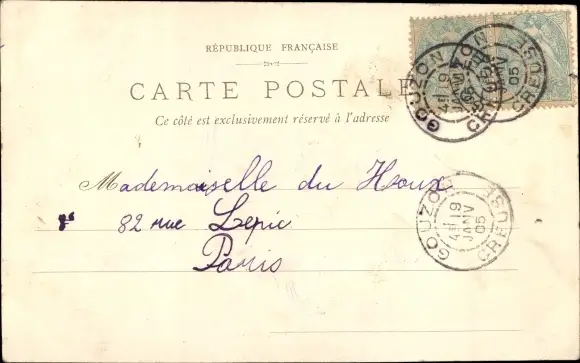 RÉPUBLIQUE FRANÇAISE
CARTE POSTALE
Ce côté est exclusivement réservé à l'adresse
GOUZON
4E 19
JANV
05
CREUSE
GOUZON
19
JANV
05
CREUSE
Mademoiselle du Houx
82 rue Lepic
Paris
GOUZON
4E 19
JANV
05
CREUSE